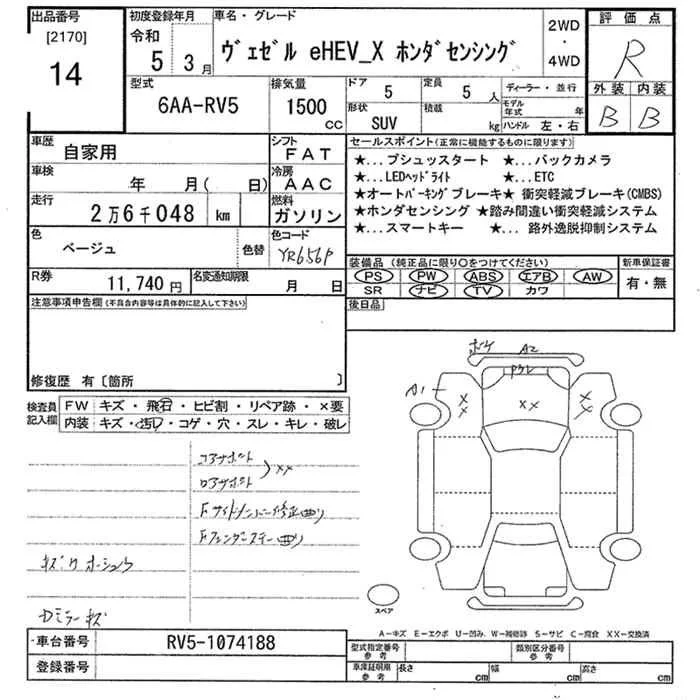 出品番号
[2170]
14
初度登録年月
令和
5 3月
車名・グレード
ヴェゼル eHEV_X ホンダセンシング
2WD
・
4WD
評価点
R
外装 内装
B B
型式
6AA-RV5
排気量
1500
CC
ドア
5
定員
5 人
形状
SUV
積載
kg
ディーラー・並行
モデル年式 年
ハンドル 左・右
車歴
自家用
シフト
FAT
車検
年 月( 日)
冷房
AAC
走行
2万6千048 km
燃料
ガソリン
色
ベージュ
色替
色コード
YR656P
R券
11,740円
名変通知期限
月 日
セールスポイント(正常に機能するものに限ります)
★... プシュッスタート ★...バックカメラ
★...LEDヘッドライト ★... ETC
★オートパーキングブレーキ★ 衝突軽減ブレーキ(CMBS)
★ホンダセンシング ★踏み間違い衝突軽減システム
★... スマートキー ★... 路外逸脱抑制システム
装備品 (純正品に限り○をつけてください)
PS PW ABS エアB AW
SR ナビ TV カワ
新車保証書
有・無
後日品
注意事項申告欄(不具合内容等は具体的に記入して下さい)
修復歴 有〔箇所 〕
検査員記入欄
FW キズ・飛石・ヒビ割・リペア跡・×要
内装 キズ・汚し・コゲ・穴・スレ・キレ・破レ
コアサポート
ロアサポート
××
Fサイドメンバー修正曲り
Fフェンダーステー曲り
Dミラーキズ
ボケ A2
A1
××
××
××
スペア
A－キズ E－エクボ U－凹み W－補修跡 S－サビ C－腐食 XX－交換済
車台番号
RV5-1074188
登録番号
型式指定番号
参考
類別区分番号
参考
車庫証明用
参考
長さ cm
幅 cm
高さ cm